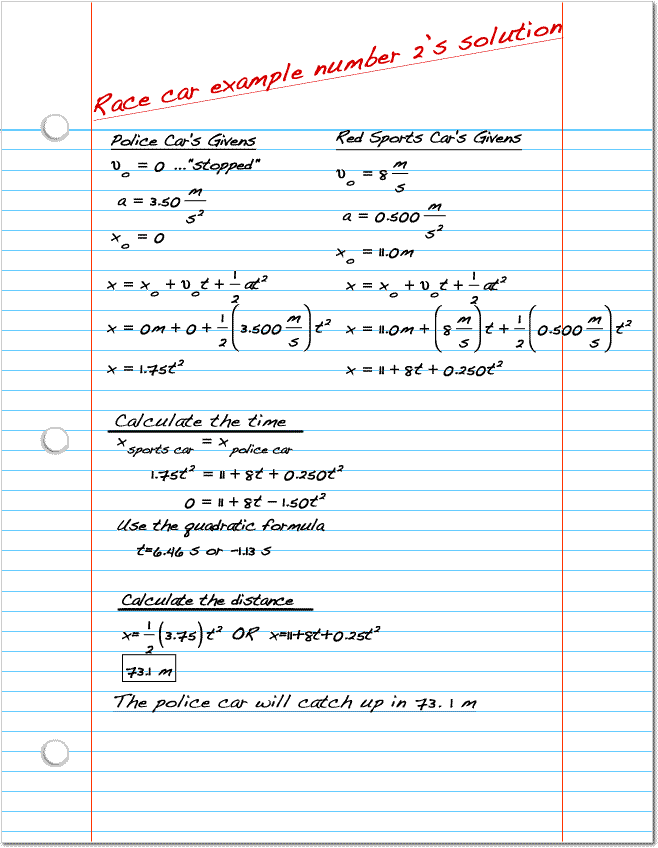 Race car example number 2's solution
Police Car's Givens
v₀ = 0 ..."stopped"
a = 3.50 m/s²
x₀ = 0
x = x₀ + v₀t + 1/2 at²
x = 0m + 0 + 1/2 (3.500 m/s) t²
x = 1.75t²
Red Sports Car's Givens
v₀ = 8 m/s
a = 0.500 m/s²
x₀ = 11.0m
x = x₀ + v₀t + 1/2 at²
x = 11.0m + (8 m/s) t + 1/2 (0.500 m/s) t²
x = 11 + 8t + 0.250t²
Calculate the time
x sports car = x police car
1.75t² = 11 + 8t + 0.250t²
0 = 11 + 8t - 1.50t²
Use the quadratic formula
t=6.46 s or -1.13 s
Calculate the distance
x= 1/2 (3.75) t² OR x=11+8t+0.25t²
73.1 m
The police car will catch up in 73.1 m